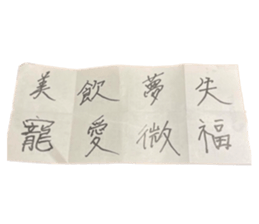 美飲夢失
寵愛微福